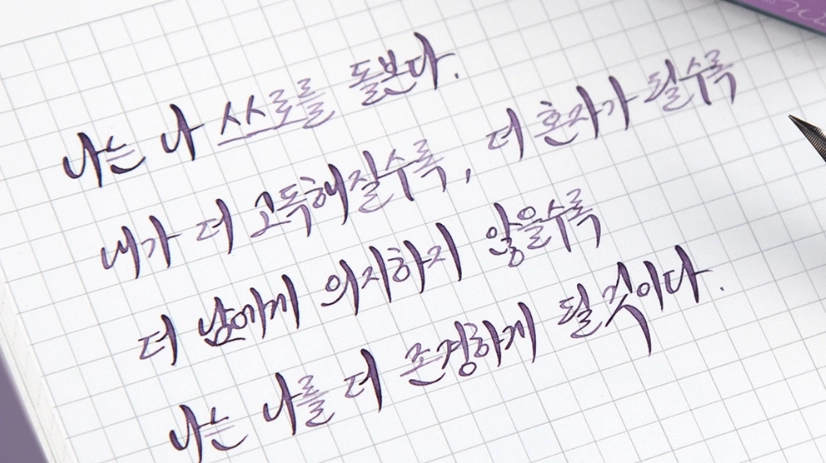 나는 나 스스로를 돌본다.
내가 더 고독해질수록, 더 혼자가 될수록
더 남에게 의지하지 않을수록
나는 나를 더 존경하게 될 것이다.